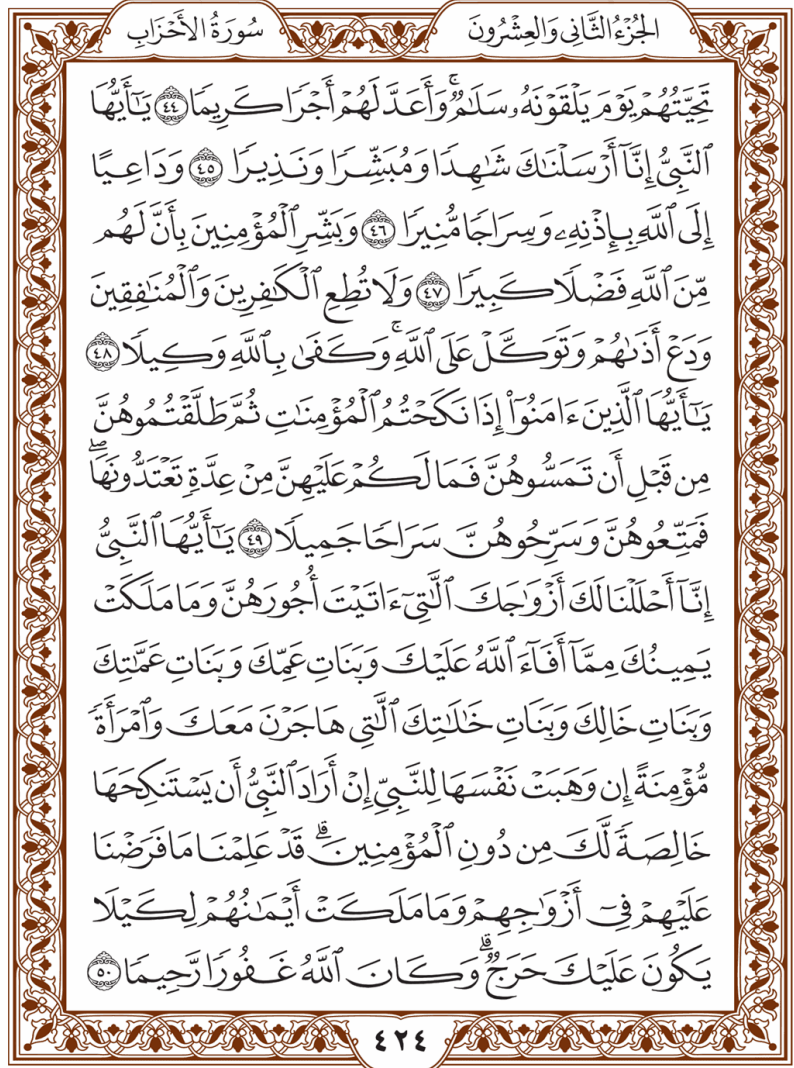 الجُزْءُ الثَّانِي وَالعِشْرُونَ
سُورَةُ الأَحْزَابِ
تَحِيَّتُهُمْ يَوْمَ يَلْقَوْنَهُۥ سَلَٰمٌۚ وَأَعَدَّ لَهُمْ أَجْرًا كَرِيمًا ٤٤ يَٰٓأَيُّهَا
ٱلنَّبِيُّ إِنَّآ أَرْسَلْنَٰكَ شَٰهِدًا وَمُبَشِّرًا وَنَذِيرًا ٤٥ وَدَاعِيًا
إِلَى ٱللَّهِ بِإِذْنِهِۦ وَسِرَاجًا مُّنِيرًا ٤٦ وَبَشِّرِ ٱلْمُؤْمِنِينَ بِأَنَّ لَهُم
مِّنَ ٱللَّهِ فَضْلًا كَبِيرًا ٤٧ وَلَا تُطِعِ ٱلْكَٰفِرِينَ وَٱلْمُنَٰفِقِينَ
وَدَعْ أَذَىٰهُمْ وَتَوَكَّلْ عَلَى ٱللَّهِۚ وَكَفَىٰ بِٱللَّهِ وَكِيلًا ٤٨
يَٰٓأَيُّهَا ٱلَّذِينَ ءَامَنُوٓا۟ إِذَا نَكَحْتُمُ ٱلْمُؤْمِنَٰتِ ثُمَّ طَلَّقْتُمُوهُنَّ
مِن قَبْلِ أَن تَمَسُّوهُنَّ فَمَا لَكُمْ عَلَيْهِنَّ مِنْ عِدَّةٍ تَعْتَدُّونَهَاۖ
فَمَتِّعُوهُنَّ وَسَرِّحُوهُنَّ سَرَاحًا جَمِيلًا ٤٩ يَٰٓأَيُّهَا ٱلنَّبِيُّ
إِنَّآ أَحْلَلْنَا لَكَ أَزْوَٰجَكَ ٱلَّٰتِىٓ ءَاتَيْتَ أُجُورَهُنَّ وَمَا مَلَكَتْ
يَمِينُكَ مِمَّآ أَفَآءَ ٱللَّهُ عَلَيْكَ وَبَنَاتِ عَمِّكَ وَبَنَاتِ عَمَّٰتِكَ
وَبَنَاتِ خَالِكَ وَبَنَاتِ خَٰلَٰتِكَ ٱلَّٰتِى هَاجَرْنَ مَعَكَ وَٱمْرَأَةً
مُّؤْمِنَةً إِن وَهَبَتْ نَفْسَهَا لِلنَّبِيِّ إِنْ أَرَادَ ٱلنَّبِيُّ أَن يَسْتَنكِحَهَا
خَالِصَةً لَّكَ مِن دُونِ ٱلْمُؤْمِنِينَۗ قَدْ عَلِمْنَا مَا فَرَضْنَا
عَلَيْهِمْ فِىٓ أَزْوَٰجِهِمْ وَمَا مَلَكَتْ أَيْمَٰنُهُمْ لِكَيْلَا
يَكُونَ عَلَيْكَ حَرَجٌۗ وَكَانَ ٱللَّهُ غَفُورًا رَّحِيمًا ٥٠
٤٢٤